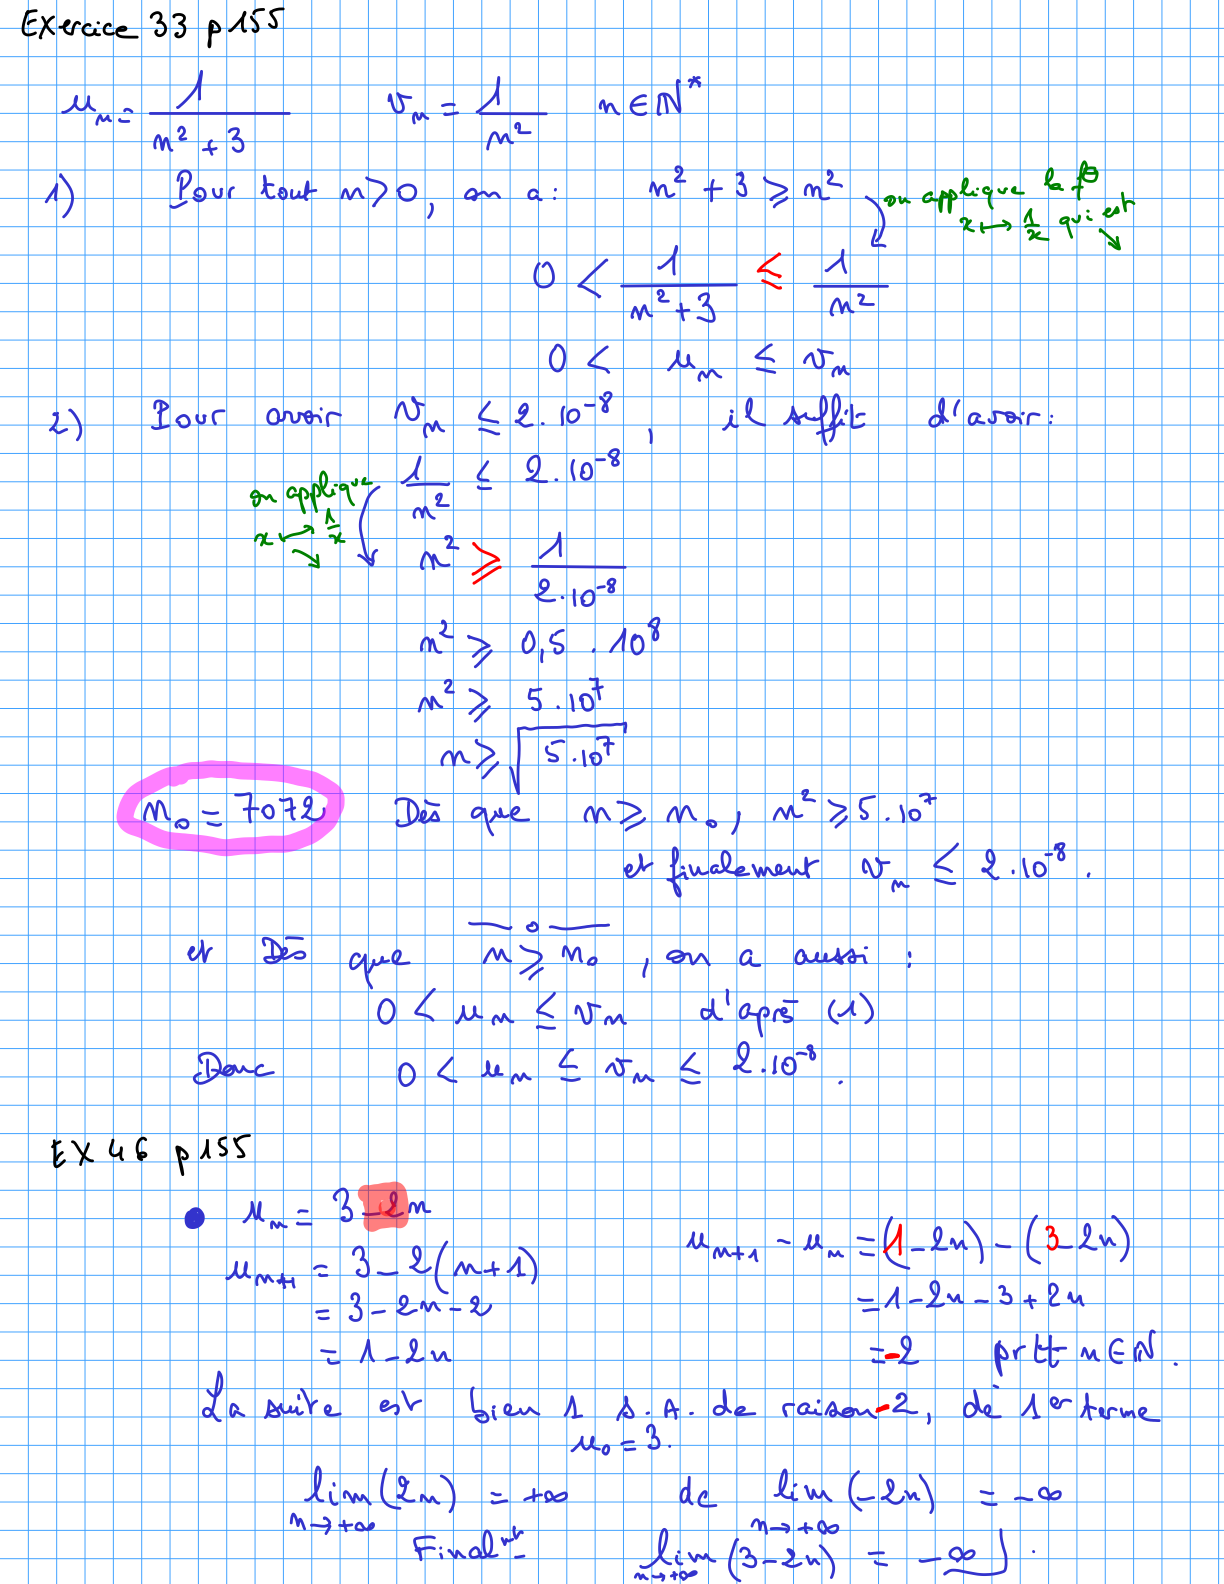 Exercice 33 p 155
u_n = 1/(n² + 3)   v_n = 1/n²   n ∈ ℕ*
1) Pour tout n > 0, on a : n² + 3 ⩾ n²
on applique la f°
x ↦ 1/x qui est ↘
0 < 1/(n² + 3) ≤ 1/n²
0 < u_n ≤ v_n
2) Pour avoir v_n ≤ 2.10⁻⁸, il suffit d'avoir :
1/n² ≤ 2.10⁻⁸
on applique
x ↦ 1/x
↘
n² ⩾ 1/(2.10⁻⁸)
n² ⩾ 0,5 . 10⁸
n² ⩾ 5.10⁷
n ⩾ √(5.10⁷)
n₀ = 7072   Dès que n ⩾ n₀, n² ⩾ 5.10⁷
et finalement v_n ≤ 2.10⁻⁸.
et Dès que n ⩾ n₀, on a aussi :
0 < u_n ≤ v_n d'après (1)
Donc 0 < u_n ≤ v_n ≤ 2.10⁻⁸.
EX 46 p 155
• u_n = 3 - 2n
u_n+1 = 3 - 2(n+1)
= 3 - 2n - 2
= 1 - 2n
u_n+1 - u_n = (1 - 2n) - (3 - 2n)
= 1 - 2n - 3 + 2n
= -2 pr tt n ∈ ℕ.
La suite est bien 1 S.A. de raison -2, de 1er terme
u₀ = 3.
lim (2n) = +∞   dc   lim (-2n) = -∞
n→+∞   n→+∞
Finalmt   lim (3 - 2n) = -∞.
n→+∞